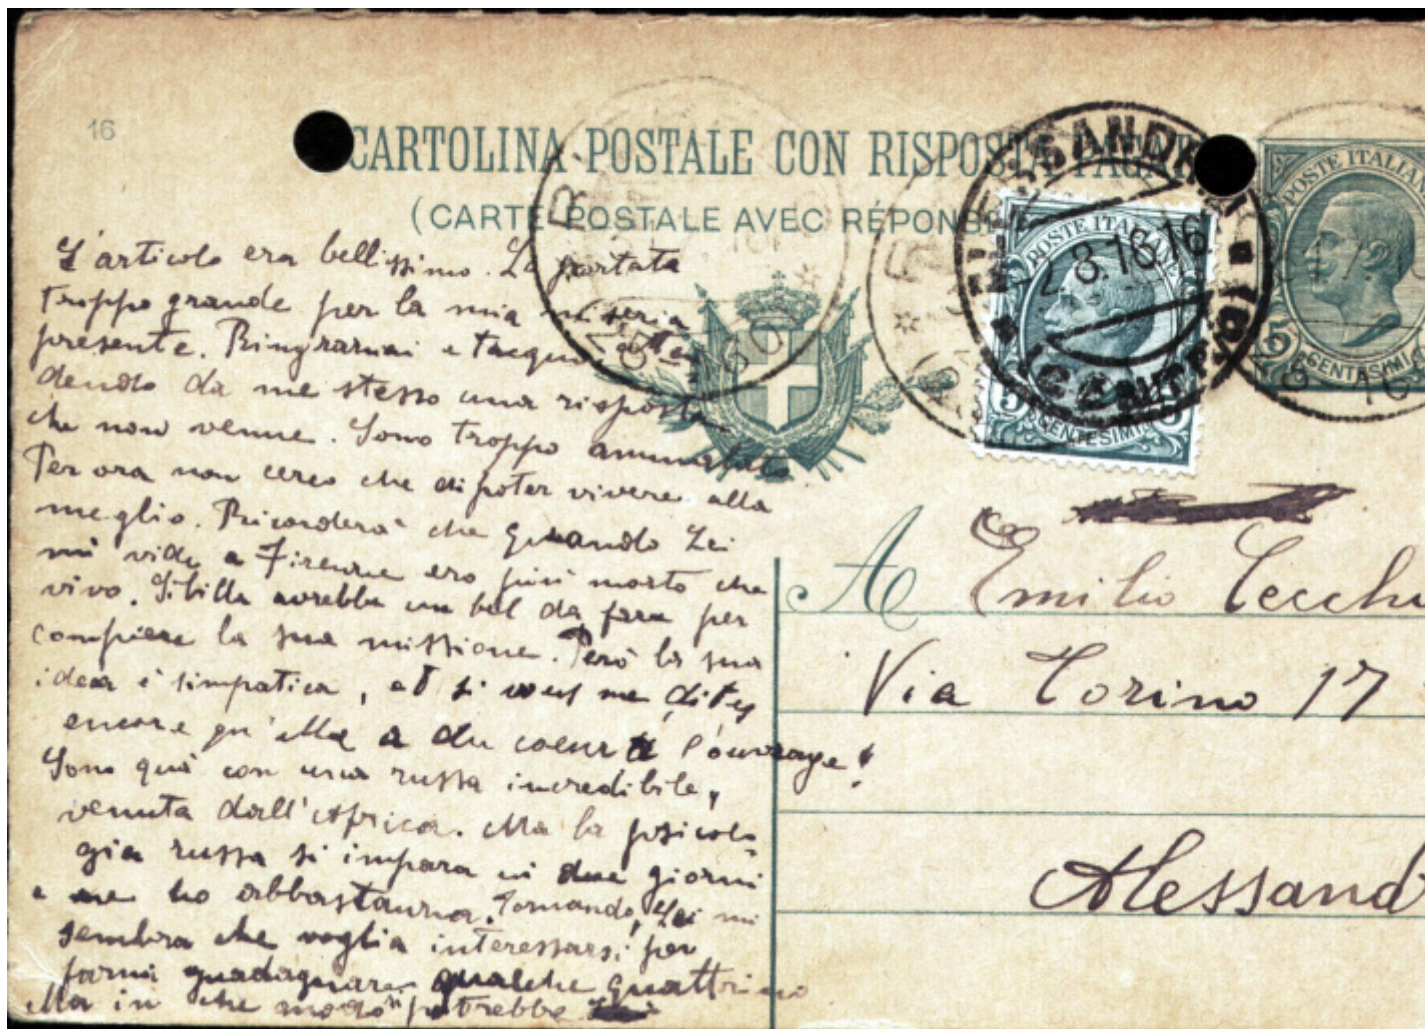 16
CARTOLINA POSTALE CON RISPOSTA PAGATA
(CARTE POSTALE AVEC RÉPONSE
POSTE ITALIANE
POSTE ITALIANE
2.8.16.16
5 CENTESIMI 5
5 CENTESIMI
L'articolo era bellissimo. La portata
troppo grande per la mia miseria
presente. Ringraziai e tacqui atten
dendo da me stesso una risposta
che non venne. Sono troppo ammalato
Per ora non cerco che di poter vivere alla
meglio. Ricorderà che quando Lei
mi vide a Firenze ero più morto che
vivo. Sibilla avrebbe un bel da fare per
compiere la sua missione. Però la sua
idea è simpatica, et si vous me dites
encore qu'elle a du coeur à l'ouvrage!
Sono quà con una russa incredibile,
venuta dall'Africa. Ma la psicolo-
gia russa si impara in due giorni
e ne ho abbastanza. Tornando, Lei mi
sembra che voglia interessarsi per
farmi guadagnare qualche quattrino
Ma in che modo potrebbe
A Emilio Cecchi
Via Torino 17
Alessand